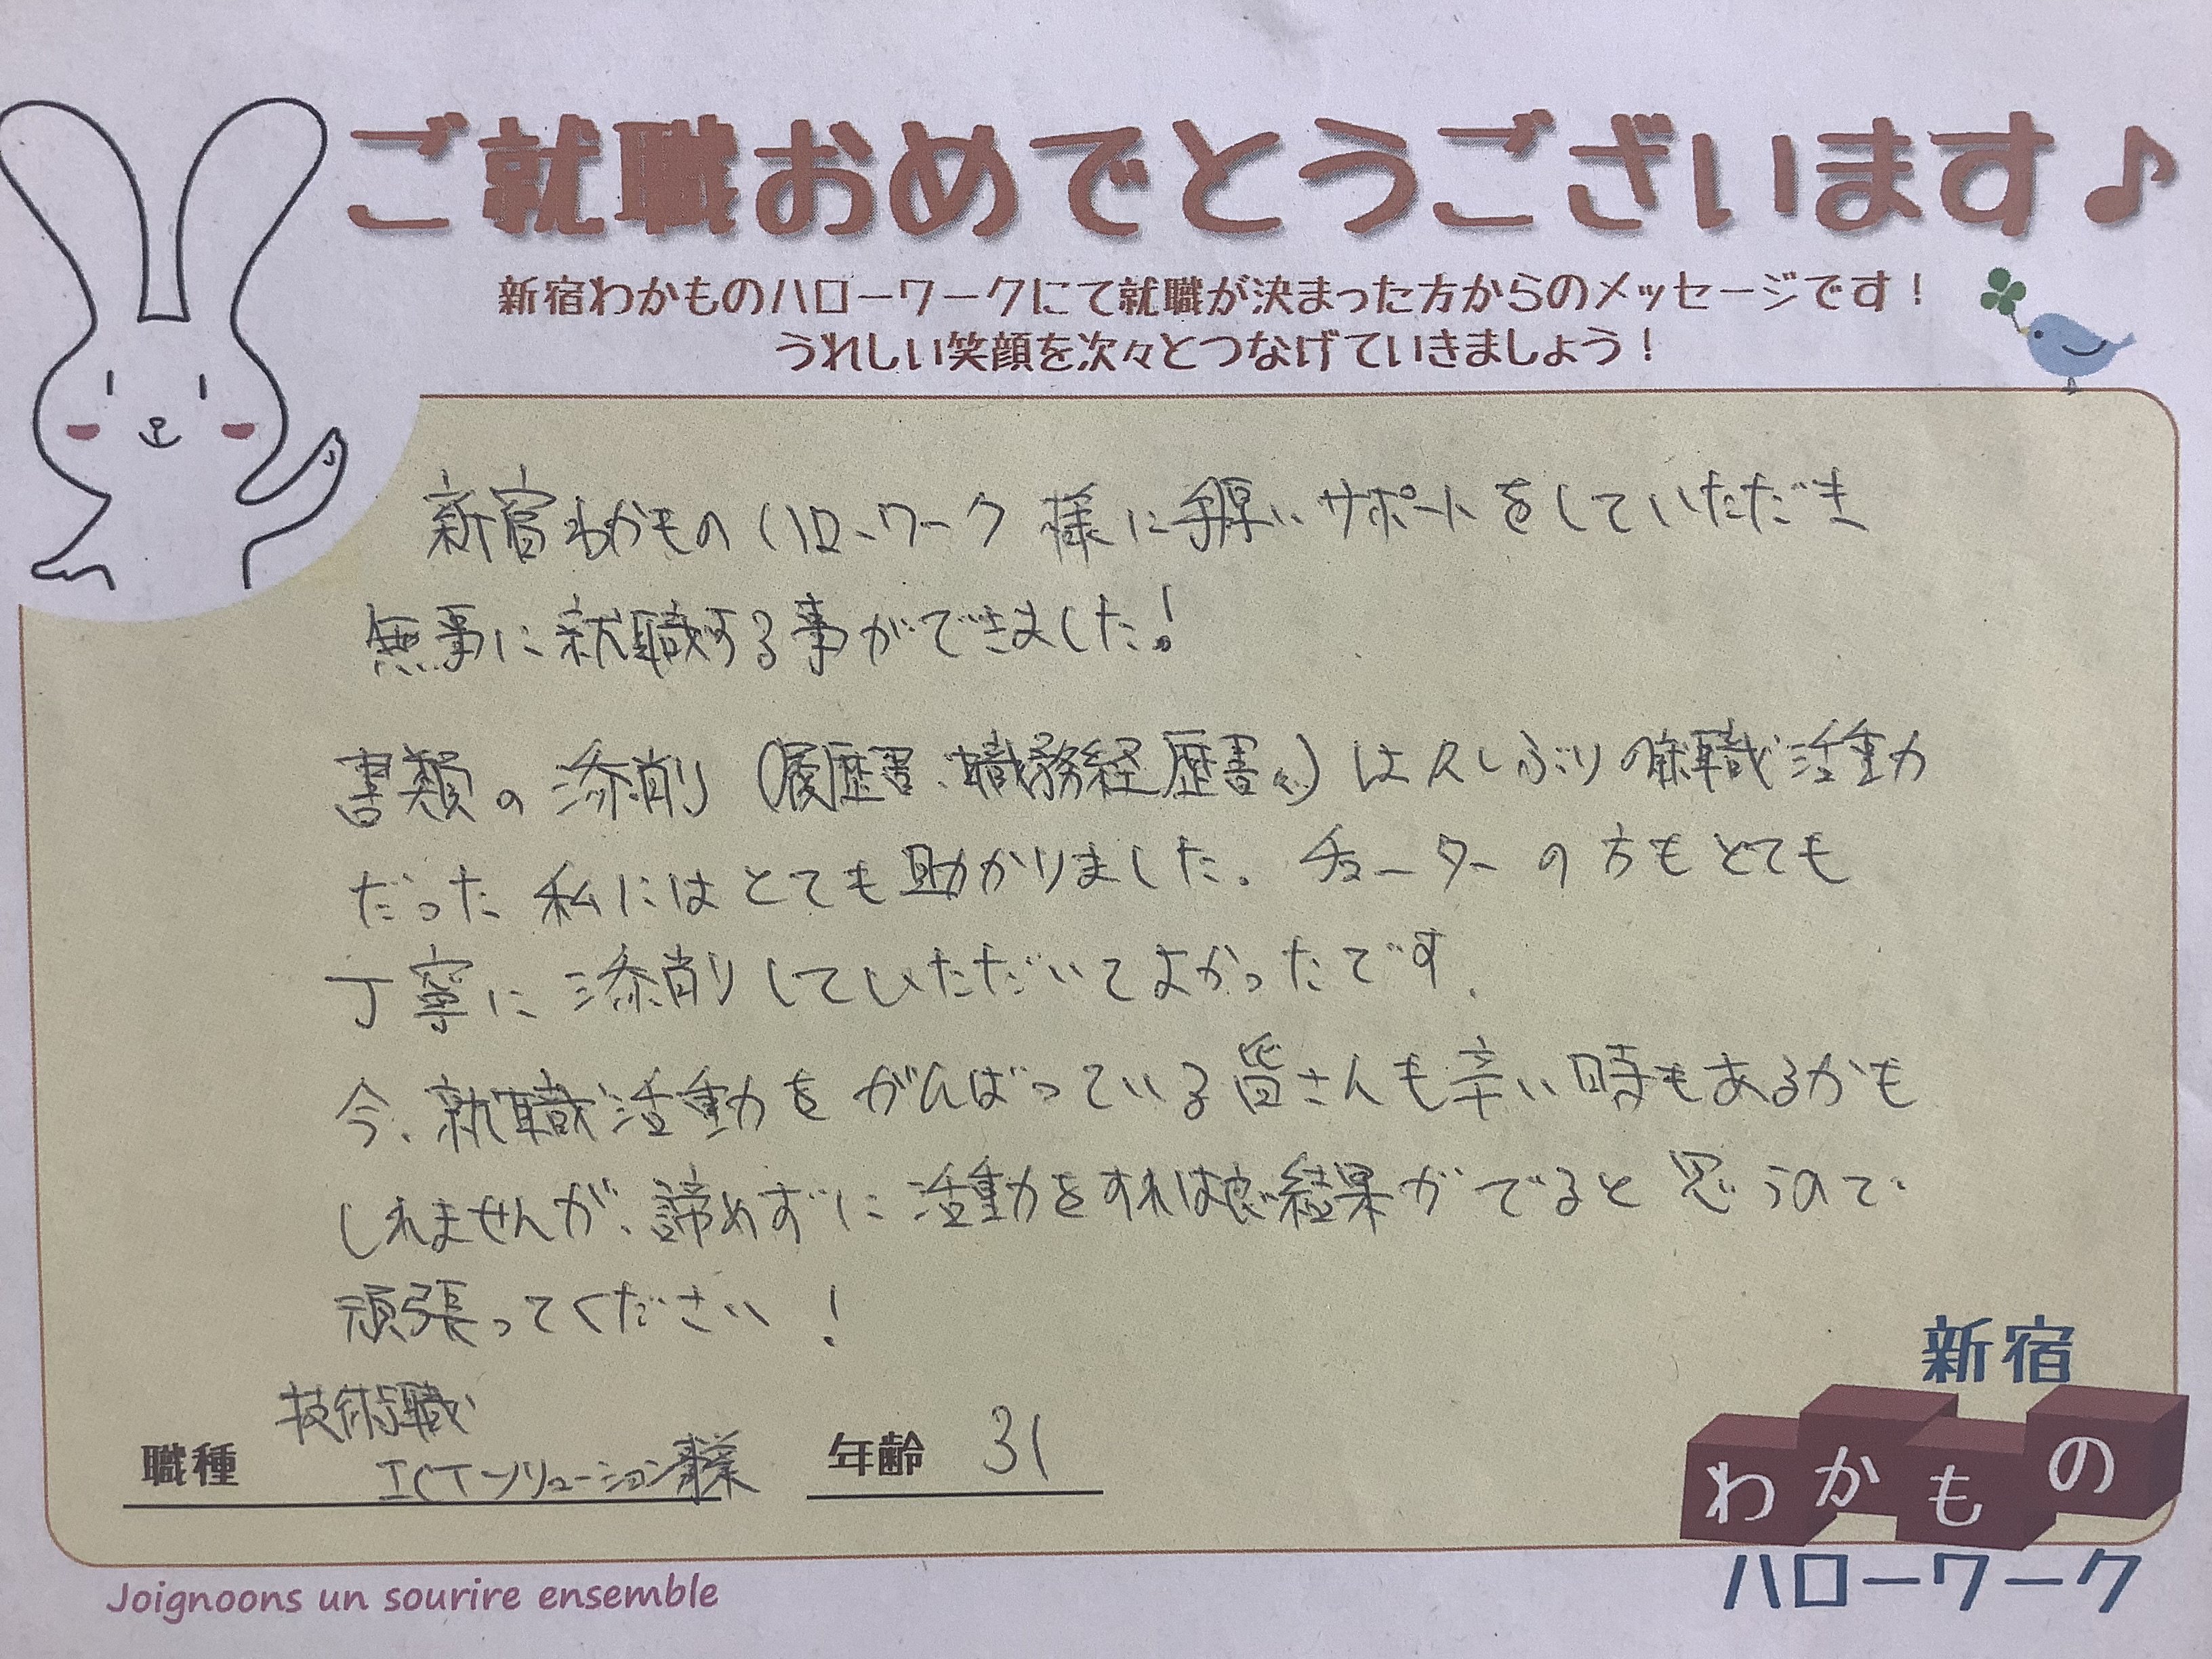 ご就職おめでとうございます♪
新宿わかものハローワークにて就職が決まった方からのメッセージです！
うれしい笑顔を次々とつなげていきましょう！
新宿わかものハローワーク様に手厚いサポートをしていただき
無事に就職する事ができました！
書類の添削(履歴書、職務経歴書など)は久しぶりの就職活動
だった私にはとても助かりました。チューターの方もとても
丁寧に添削していただいてよかったです。
今、就職活動をがんばっている皆さんも辛い時もあるかも
しれませんが、諦めずに活動をすれば良い結果がでると思うので
頑張ってください！
技術職
職種 ICTソリューション事業 年齢 31
新宿
わかもの
ハローワーク
Joignoons un sourire ensemble